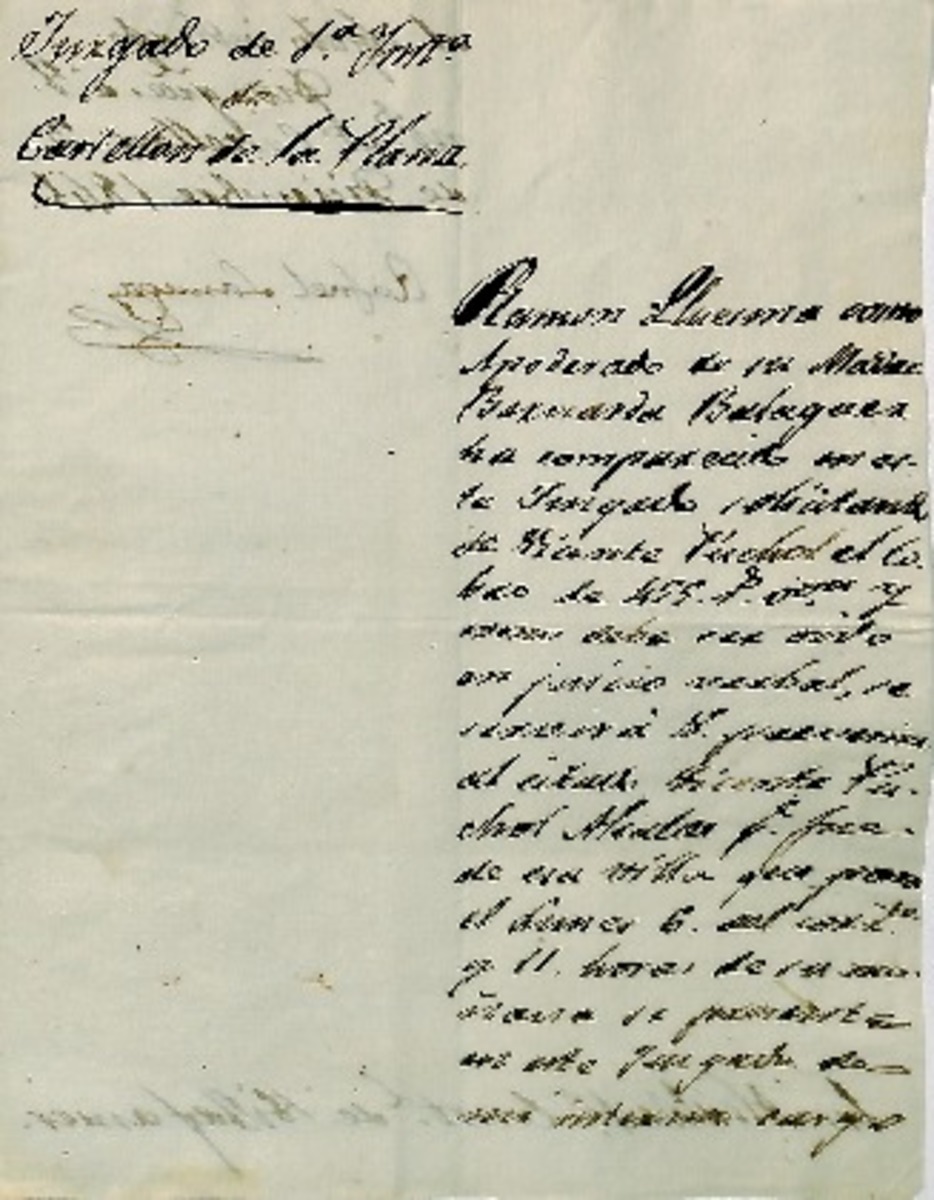 Juzgado de 1.ª Ynst.ª
de
Castellon de la Plana
Ramon Llucima como
Apoderado de su Madre
Bernarda Balaguer
ha comparecido en es-
te Juzgado solicitando
de Vicente Puchol el Co-
bro de 455. r.s v.on y
como debe ser oido
en juicio verbal, se
servirá V. prevenir
al citado Vicente Pu-
chol Alcalde
de esa Villa que para
el Lunes 6. del corr.te
y 11. horas de su ma-
ñana se presente
en este Juzgado de
mi interino cargo
Rafael